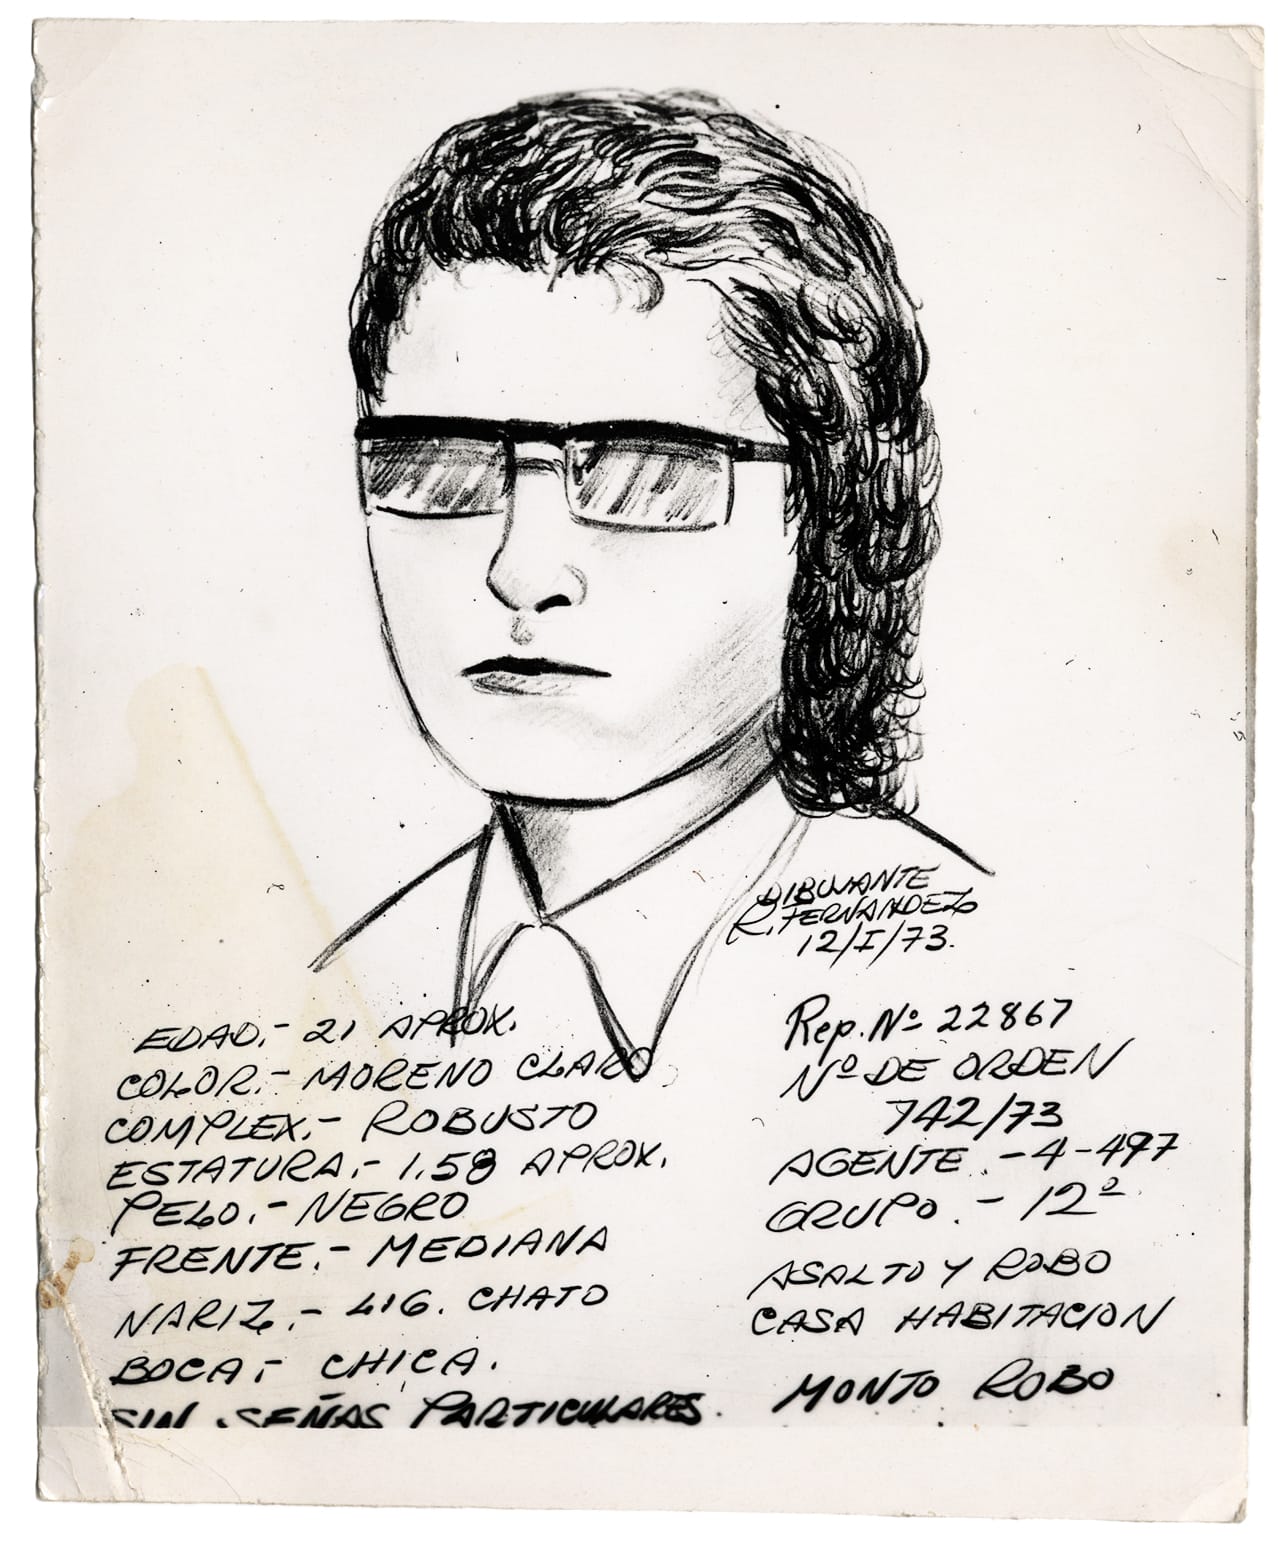 DIBUJANTE
R. FERNANDEZ
12/I/73.
EDAD.- 21 APROX.
COLOR.- MORENO CLARO
COMPLEX.- ROBUSTO
ESTATURA.- 1.58 APROX.
PELO.- NEGRO
FRENTE.- MEDIANA
NARIZ.- LIG. CHATO
BOCA.- CHICA.
SIN SEÑAS PARTICULARES.
Rep. Nº 22867
Nº DE ORDEN
742/73
AGENTE.- 4-497
GRUPO.- 12º
ASALTO Y ROBO
CASA HABITACION
MONTO ROBO